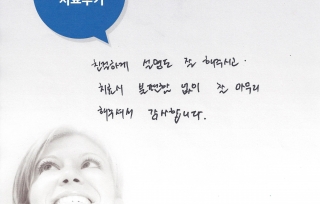 치료후기
친절하게 설명도 잘 해주시고.
치료시 불편함 없이 잘 마무리
해주셔서 감사합니다.